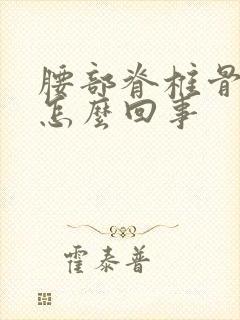 腰部脊柱骨
怎麼回事
霍泰普